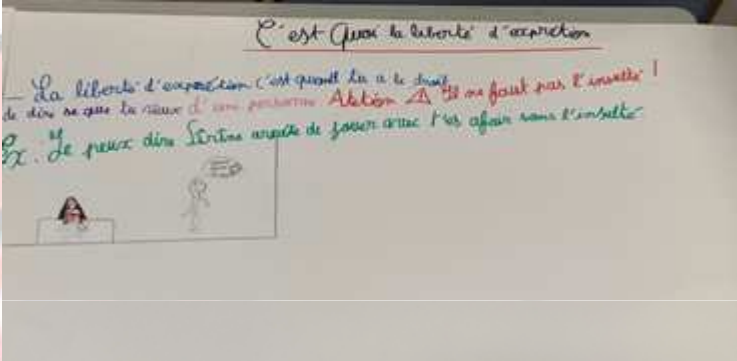 C'est Quoi la liberté d'expretion
La liberté d'expretion c'est quand tu a le droit
de dire se que tu veux d'une personne Attention ⚠ Il ne faut pas l'insulté !
Ex. Je peux dire arrête de jouer avec t'es afair sans l'insulté